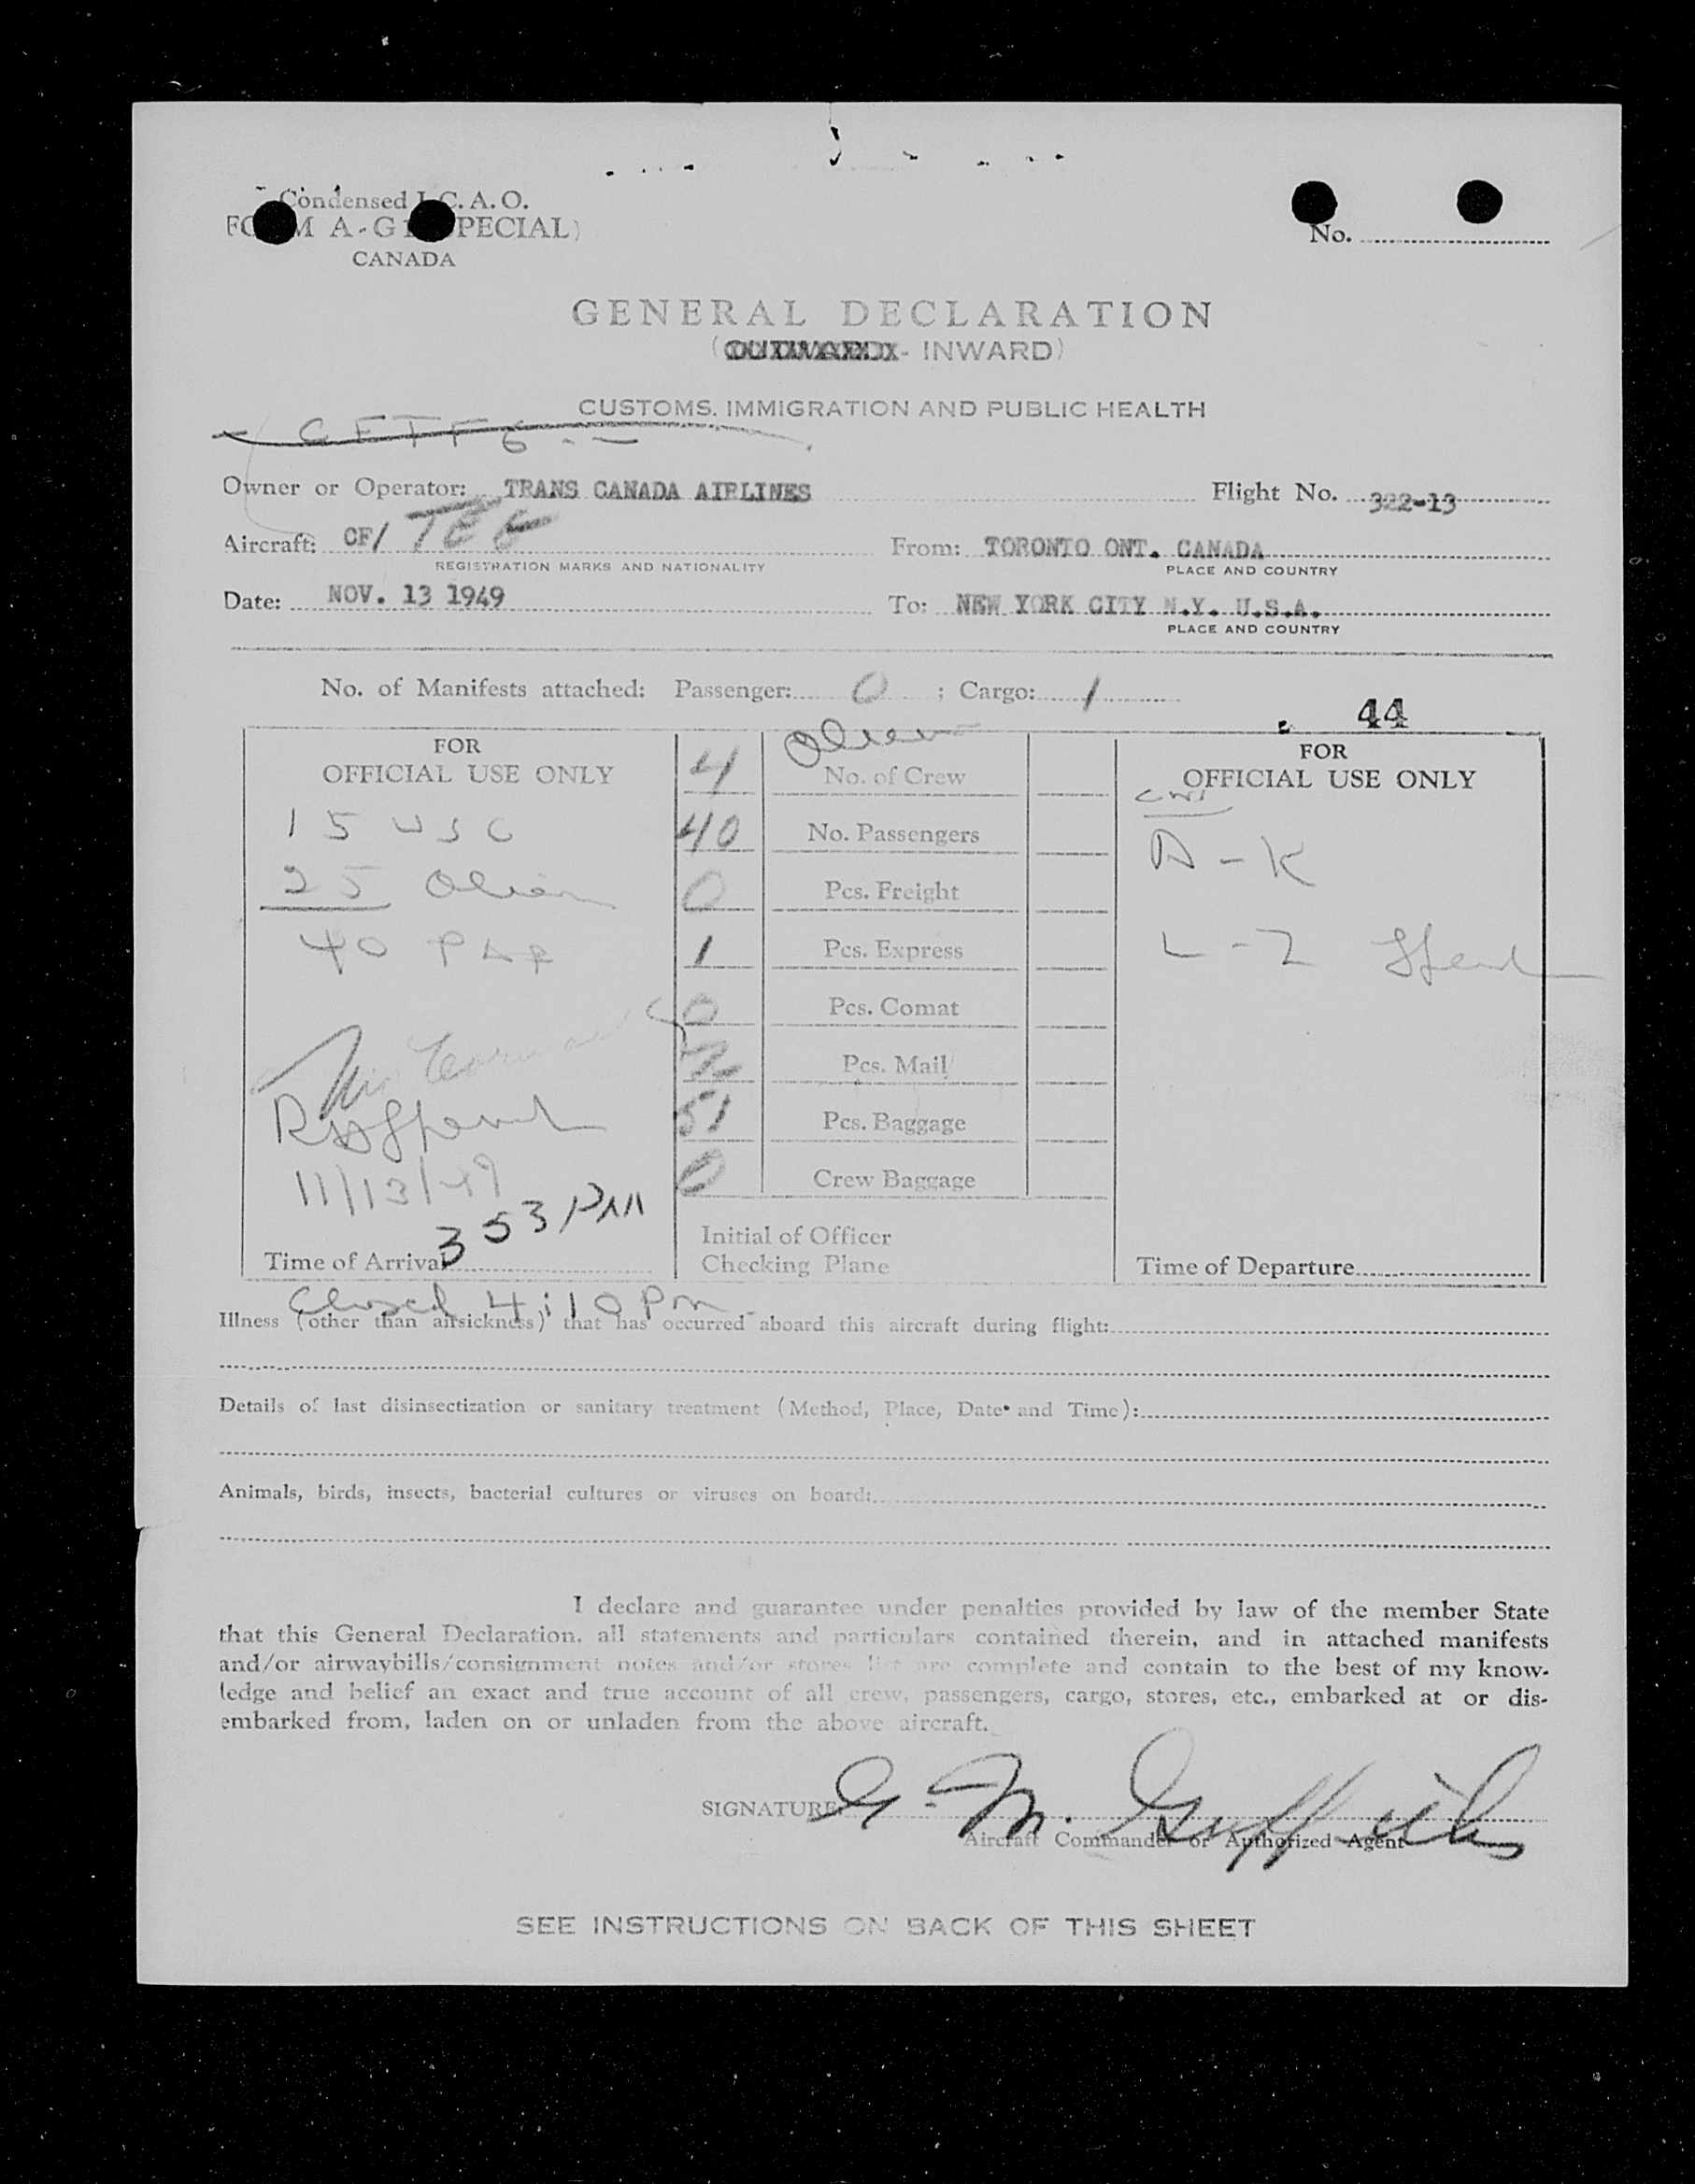 Condensed I.C.A.O.
FORM A-G1 (SPECIAL)
CANADA
No.
GENERAL DECLARATION
(OUTWARD - INWARD)
CUSTOMS, IMMIGRATION AND PUBLIC HEALTH
Owner or Operator: TRANS CANADA AIRLINES Flight No. 322-13
Aircraft: CF/
From: TORONTO ONT. CANADA
REGISTRATION MARKS AND NATIONALITY
PLACE AND COUNTRY
Date: NOV. 13 1949 To: NEW YORK CITY N.Y. U.S.A.
PLACE AND COUNTRY
No. of Manifests attached: Passenger: 0 ; Cargo: 1
44
Alien
FOR
OFFICIAL USE ONLY
15 USC
25 Alien
40 PAP
11/13/49
3 53 PM
Time of Arrival
4 No. of Crew
40 No. Passengers
0 Pcs. Freight
1 Pcs. Express
0 Pcs. Comat
Pcs. Mail
51 Pcs. Baggage
0 Crew Baggage
Initial of Officer
Checking Plane
FOR
OFFICIAL USE ONLY
A-K
L-Z
Time of Departure
Closed 4:10 Pm
Illness (other than airsickness) that has occurred aboard this aircraft during flight:
Details of last disinsectization or sanitary treatment (Method, Place, Date and Time):
Animals, birds, insects, bacterial cultures or viruses on board:
I declare and guarantee under penalties provided by law of the member State
that this General Declaration, all statements and particulars contained therein, and in attached manifests
and/or airwaybills/consignment notes and/or stores list are complete and contain to the best of my know-
ledge and belief an exact and true account of all crew, passengers, cargo, stores, etc., embarked at or dis-
embarked from, laden on or unladen from the above aircraft.
SIGNATURE: G. M. Griffiths
Aircraft Commander or Authorized Agent
SEE INSTRUCTIONS ON BACK OF THIS SHEET